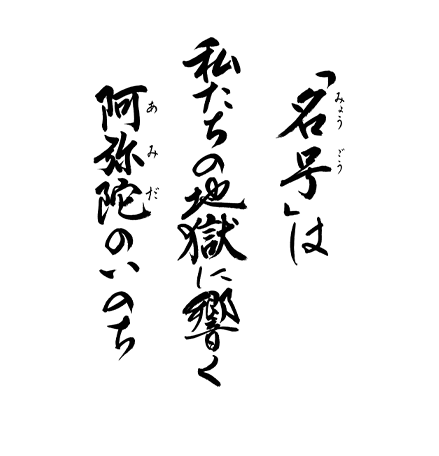 「名号」は
みょうごう
私たちの地獄に響く
阿弥陀のいのち
あみだ